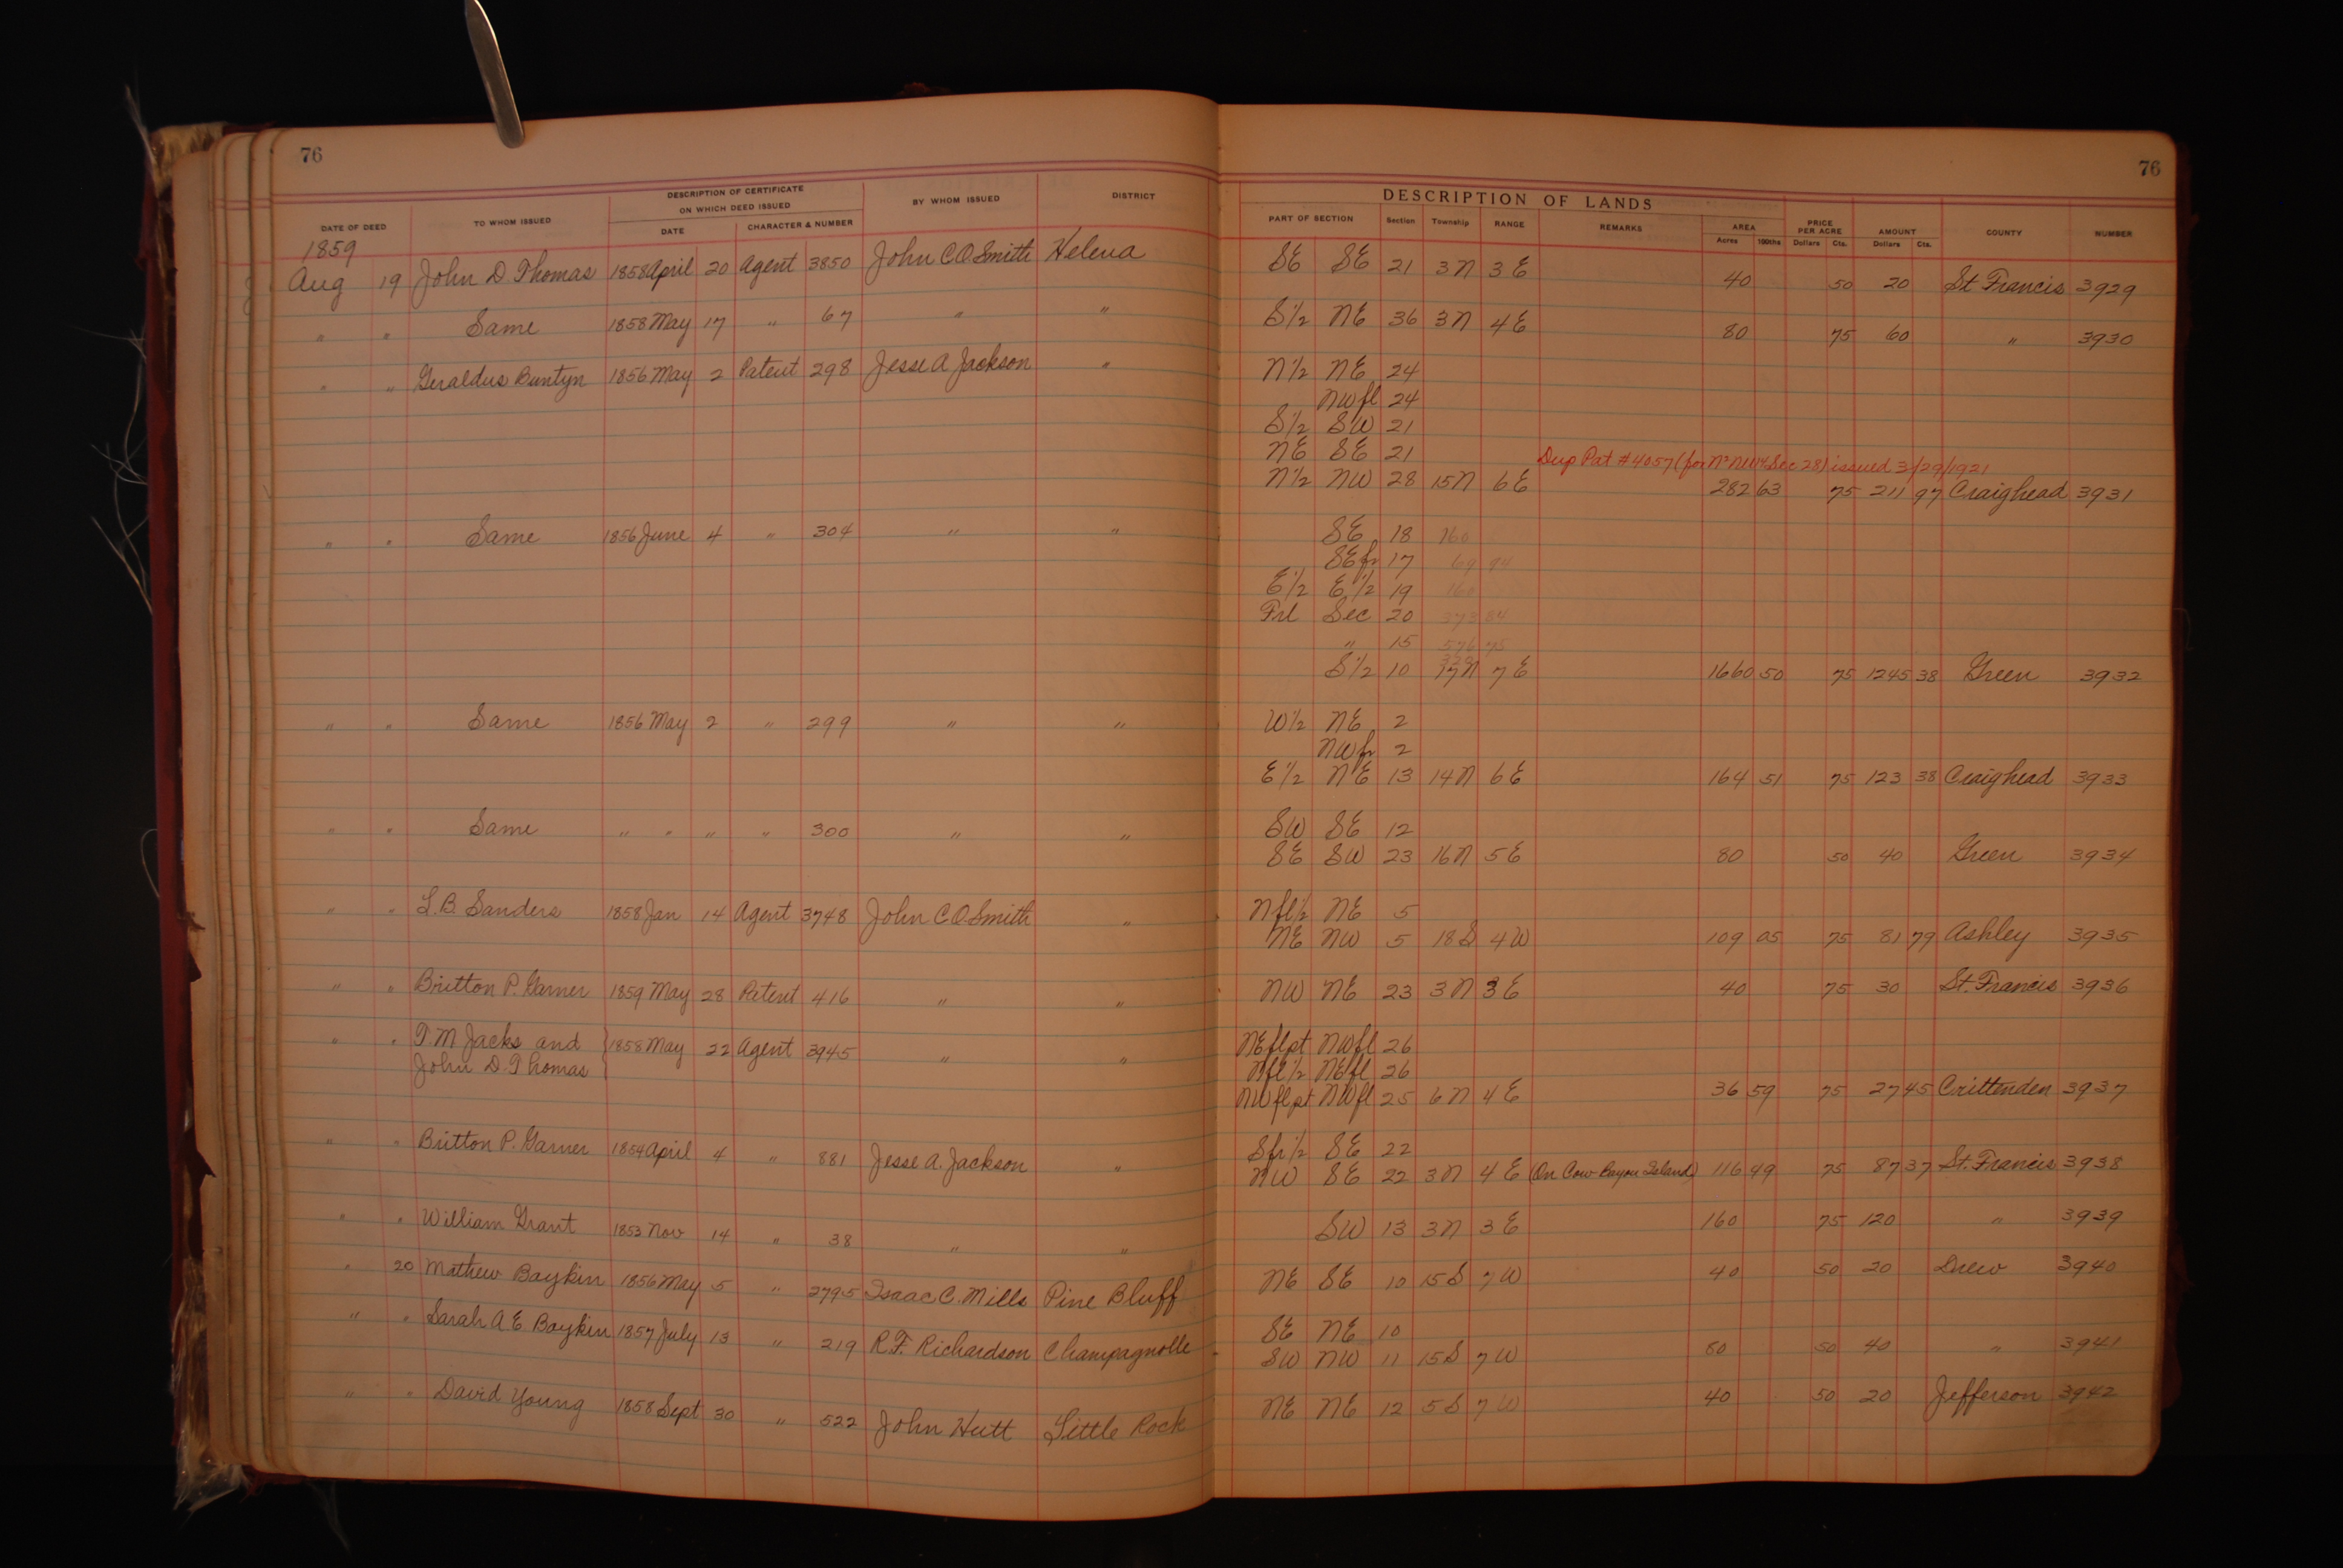 76
76
DESCRIPTION OF CERTIFICATE
ON WHICH DEED ISSUED
DATE OF DEED TO WHOM ISSUED DATE CHARACTER & NUMBER BY WHOM ISSUED DISTRICT
DESCRIPTION OF LANDS
PART OF SECTION Section Township RANGE REMARKS AREA PRICE PER ACRE AMOUNT COUNTY NUMBER
Acres 100ths Dollars Cts. Dollars Cts.
1859
Aug 19 John D. Thomas 1858 April 20 Agent 3850 John C O Smith Helena SE SE 21 3N 3E 40 50 20 St Francis 3929
" " Same 1858 May 17 " 67 " " S½ NE 36 3N 4E 80 75 60 " 3930
" " Geraldus Buntyn 1856 May 2 Patent 298 Jesse A Jackson " N½ NE 24
NWfl 24
S½ SW 21
NE SE 21
Dup Pat #4057 (for N½ NW¼ Sec 28) issued 3/29/1921
N½ NW 28 15N 6E 282 63 75 211 97 Craighead 3931
" " Same 1856 June 4 " 304 " " SE 18 160
SEfr 17 69 94
E½ E½ 19 160
Frl Sec 20 373 84
" 15 576 75
320
S½ 10 17N 7E 1660 50 75 1245 38 Green 3932
" " Same 1856 May 2 " 299 " " W½ NE 2
NWfr 2
E½ NE 13 14N 6E 164 51 75 123 38 Craighead 3933
" " Same " " " " 300 " " SW SE 12
SE SW 23 16N 5E 80 50 40 Green 3934
" " L.B. Sanders 1858 Jan 14 Agent 3748 John C O Smith " Nfl½ NE 5
NE NW 5 18S 4W 109 05 75 81 79 Ashley 3935
" " Britton P. Garner 1859 May 28 Patent 416 " " NW NE 23 3N 3E 40 75 30 St. Francis 3936
" " T. M Jacks and } 1858 May 22 Agent 3945 " " NEflpt NWfl 26
John D. Thomas Nfl½ NEfl 26
NWflpt NWfl 25 6N 4E 36 59 75 27 45 Crittenden 3937
" " Britton P. Garner 1854 April 4 " 881 Jesse A. Jackson " Sfr½ SE 22
NW SE 22 3N 4E (On Cow Bayou Island) 116 49 75 87 37 St. Francis 3938
" " William Grant 1853 Nov 14 " 38 " " SW 13 3N 3E 160 75 120 " 3939
" 20 Mathew Boykin 1856 May 5 " 2795 Isaac C. Mills Pine Bluff NE SE 10 15S 7W 40 50 20 Drew 3940
" " Sarah A E Boykin 1857 July 13 " 219 R.F. Richardson Champagnolle SE NE 10
SW NW 11 15S 7W 80 50 40 " 3941
" " David Young 1858 Sept 30 " 522 John Hutt Little Rock NE NE 12 5S 7W 40 50 20 Jefferson 3942